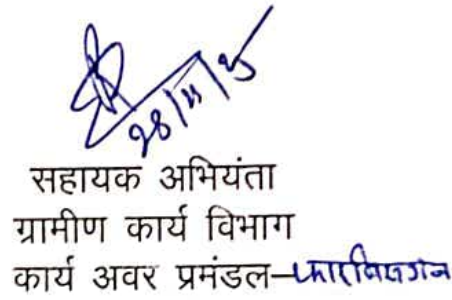 28/11/25
सहायक अभियंता
ग्रामीण कार्य विभाग
कार्य अवर प्रमंडल-फारबिसगंज